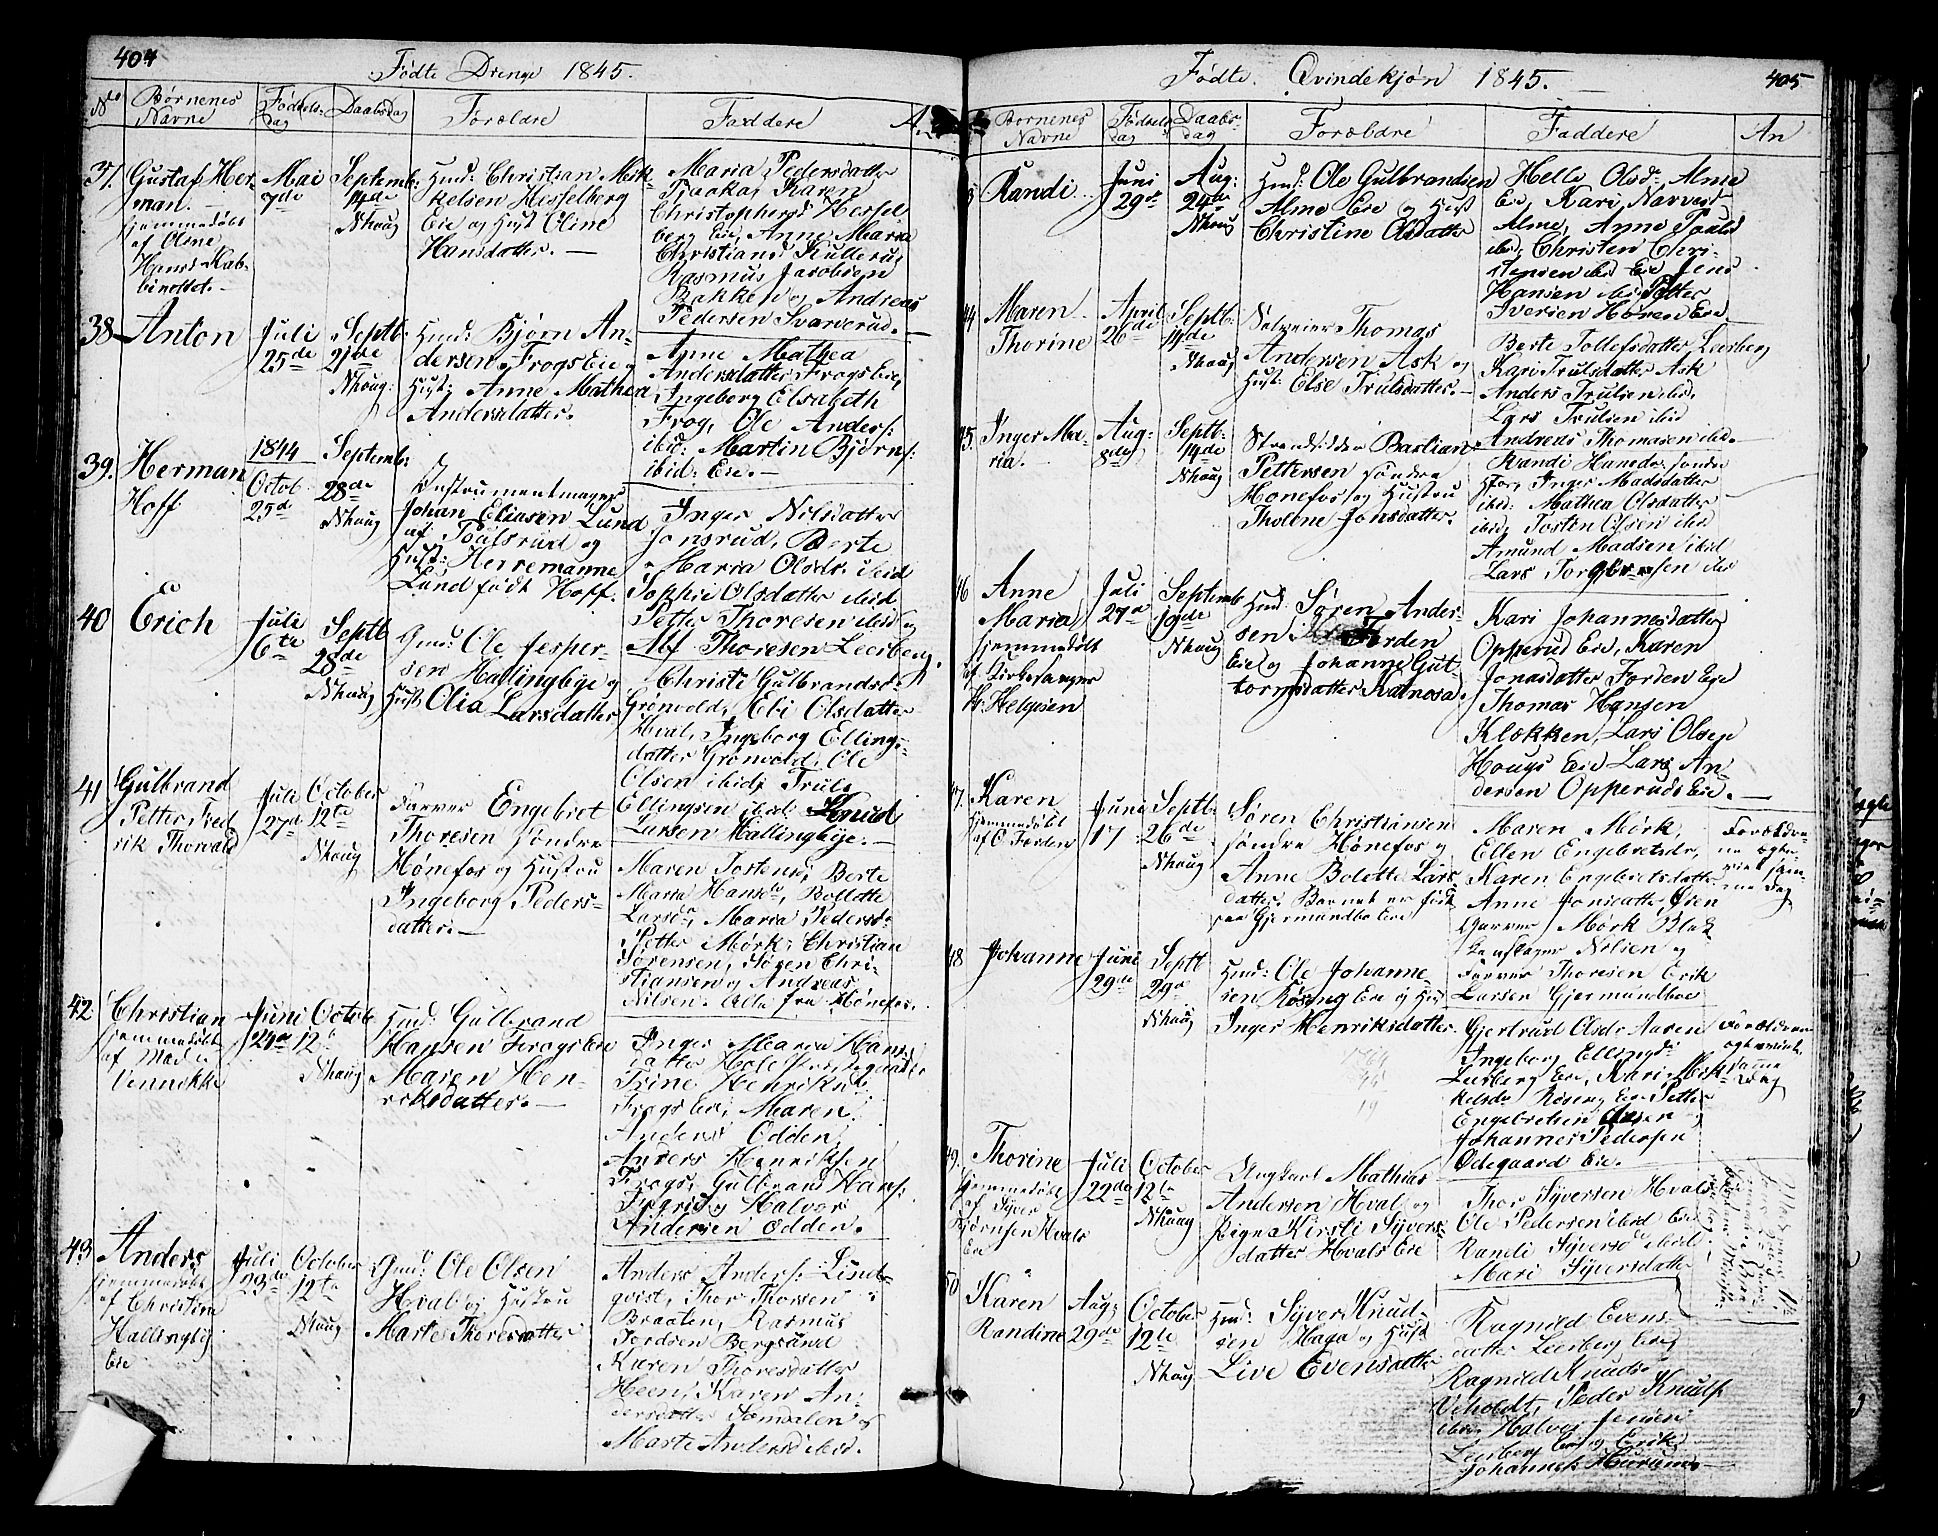 404
Fødte Drenge 1845.
No Børnenes Navne Fødsels-dag Daabsdag Forældre Faddere A
37. Gustaf Her-
man. –
hjemmedøbt
af Olme
Mai
7de
Septemb:
14de
Nhoug
Hmd: Christian Mik-
kelsen Hesselberg
Eie og Hust Oline
Hansdatter. –
Maria Pedersdatter
Karen
Christophersd Hessel
berg Eie, Anne Maria
Christiansd Kullerud
Rasmus Jacobsen
Bakke og Andreas
Pedersen Svarverud. –
38 Anton
Juli
25de
Septb.
21de
Nhoug:
Hmd: Bjørn An-
dersen Frogs Eie og
Hust: Anne Mathea
Andersdatter.
Anne Mathea
Andersdatter Frogs Eie,
Ingeborg Elsabeth
Frog, Ole Anders:
ibid: Martin Bjørns:
ibid: Eie. –
39. Herman
Hoff
1844
Octob.
25d
Septemb:
28de
Nhoug
Instrumentmager
Johan Eliasen Lund
af Poulsrud og
Hust: Herremanne
Lund født Hoff.
Inger Nilsdatter
Jonsrud, Berte
Maria Olsdr. ibid
Sophie Olsdatter ibid
Petter Thoresen ibid og
Alf Thoresen Leerberg.
40 Erich
Juli
6te
Septb
28de
Nhoug
Gmd: Ole Jesper-
sen Hallingbye og
Hust Olia Larsdatter
Christi Gulbrandsd.
Grønvold, Ebi Olsdatter
Hval, Ingeborg Ellings-
datter Grønvold, Ole
Olsen ibid, Truls
Ellingsen ibid. Knud
Larsen Hallingbye. –
41 Gulbrand
Petter Fred
rik Thorvald
Juli
27d
October
12te
Nhoug
Farver Engebret
Thoresen søndre
Hønefos og Hustru
Ingeborg Peders-
datter. –
Maren Tostens, Berte
Maria Hansdr, Bollette
Larsdr, Maria Pedersdr
Petter Mørk, Christian
Sørensen, Søren Chri-
stiansen og Andreas
Nilsen. Alle fra Hønefos.
42. Christian
hjemmedøbt
af Mad.
Vennikke
Juni
24de
Octob
12
Nhoug
Hmd: Gulbrand
Hansen Frogs Eie
Maren Hen-
riksdatter. –
Inger Maria Hans
datter Hole Præstegaarden
Trine Henriksd.
Frogs Eie, Maren
Andersd Odden,
Anders Henriksen
Frogs, Gulbrand Hans:
Halvor
Andersen Odden.
43 Anders
hjemmedøbt
af Christine
Hallingby
Eie
Juli
23de
October
12te
Nhoug
Gmd: Ole Olsen
Hval og Hustru
Marte Thoresdatter
Anders Anders: Lind-
qvist, Thor Thorsen
Braaten, Rasmus
Bergsund
Karen Thoresdatter
Heen, Karen An-
dersdatter Somdalen og
Marte Andersd ibid.
405
Fødte Qvindekjøn 1845. –
Børnenes Navne Fødsels dag Daabs-dag Forældre Faddere An
Randi
Juni
29de
Aug:
24de
Nhoug
Hmd: Ole Gulbrandsen
Alme Eie og Hust
Christine Olsdatter
Helle Olsd: Alme
Eie, Kari Narvesd
Alme, Anne Poulsd
ibid, Christen Chri-
stensen ibid Eie Jens
Hansen ibid Petter
Iversen Høren Eie
44 Maren
Thorine
April
26de
Septb:
14de
Nhoug
Selveier Thomas
Andersen Ask og
Hust: Else Trulsdatter. –
Berte Tollefsdatter Leerberg
Kari Trulsdatter Ask
Anders Trulsen ibid.
Lars Trulsen ibid
Andreas Thomasen ibid. –
45. Inger Ma-
ria. –
Aug:
8de
Septb:
14de
Nhoug
Strandsidder Bastian
Pettersen søndre
Hønefos og Hustru
Tholene Jonsdatter.
Randi Hansdr søndre
Hfos, Inger Madsdatter
ibid: Mathea Olsdatter
ibid, Tosten Olsen ibid
Amund Madsen ibid
Lars Torgersen ibid
46 Anne
Maria
hjemmedøbt
af Kirkesanger
H. Helgesen
Juli
27de
Septemb
19de
Nhoug
Hmd: Søren Ander-
sen Færden
Eie og Johanne Gut-
tormsdatter Katnosa.
Kari Johannesdatter
Opperud Eie, Karen
Jonasdatter Færden Eie
Thomas Hansen
Klækken, Lars Olsen
Hougs Eie Lars An-
dersen Opperuds Eie. –
47. Karen
hjemmedøbt
af O. Færden
Juni
17
Septb.
26de
Nhoug
Søren Christiansen
søndre Hønefos og
Anne Bolette Lars
datter. Barnet er født
paa Gjermundbo Eie
Maren Mørk,
Ellen Engebretsdr,
Karen Engebretsdatter
Anne Jonsdatter Øien
Garver Mørk Blik
kenslager Nilsen og
Farver Thoresen Erik
Larsen Gjermundboe
Forældre-
ne ægte-
viet sam-
me Dag
48 Johanne
Juni
29de
Septb
29de
Nhoug
Hmd: Ole Johanne-
sen Røsing Eie og Hust
Inger Henriksdatter
Gjertrud Olsdr Aasen
Ingeborg Ellingsd:
Leerberg Eie, Kari Mik-
kelsdr Røsing Eie Petter
Engebretsen Aasen
Johannes Pedersen
Ødegaard Eie. –
Forældrene
ægteviet
samme
Dag
49. Thorine
hjemmedøbt
af Syver
Bjørnsen Hvals
Eie
Juli
22de
October
12te
Nhoug
Ungkarl Mathias
Andersen Hval og
Pige Kirsti Syvers
datter Hvals Eie
Thor Syversen Hvals
Ole Pedersen ibid Eie
Randi Syversdr ibid
Mari Syversdatter
50 Karen
Randine
Aug:
29de
October
12te
Nhoug
Hmd: Syver Knud-
sen Haga og Hust
Live Evensdatter
Ragnild Evens-
datter Leerberg Eie,
Ragnild Knudsd
Veholdt, Peder Knuds:
ibid, Halvor Jensen
Leerberg Eie og Erik
Johannes Hurum –